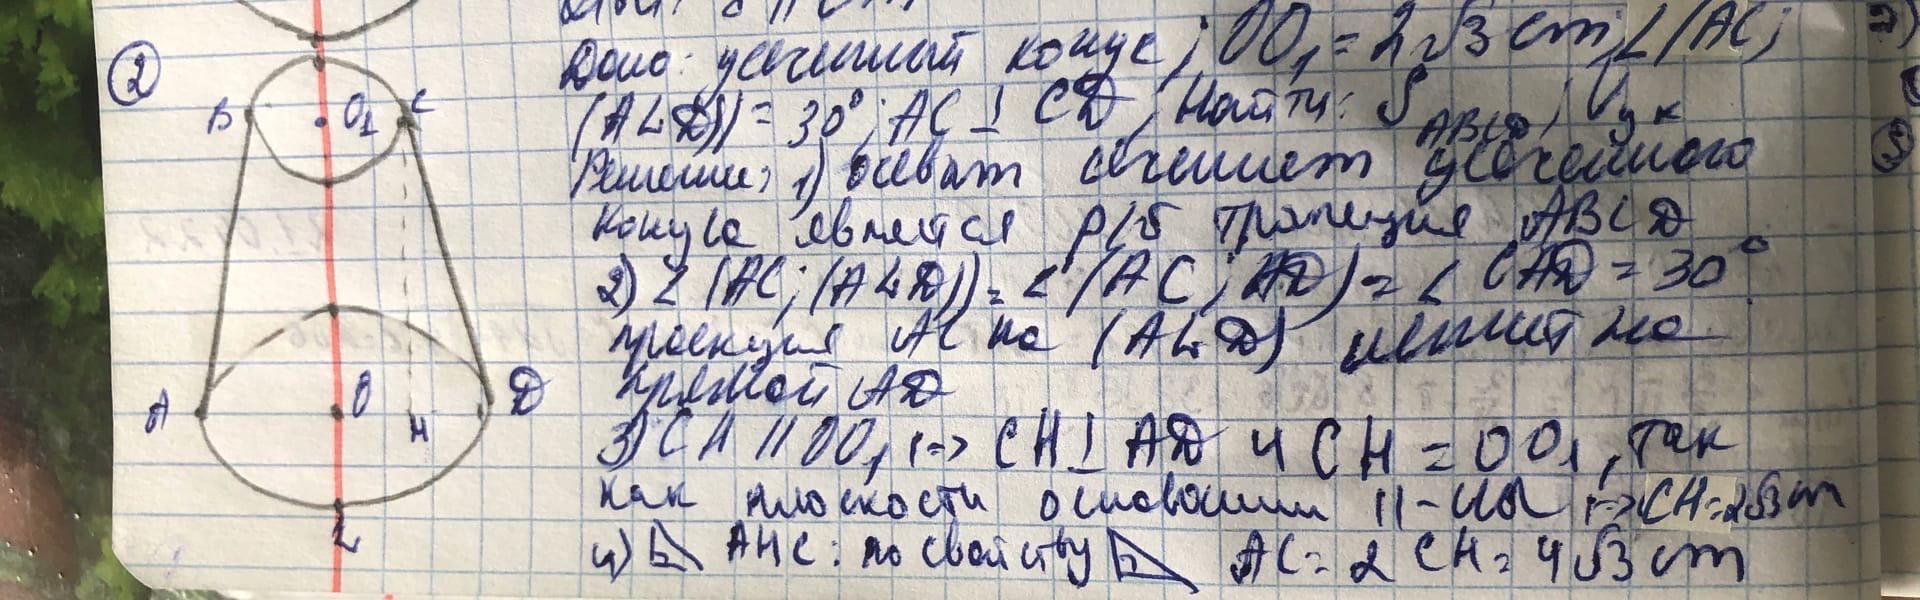 ②
Дано: усеченный конус; OO₁ = 2√3 cm; ∠(AC;
(ALD)) = 30°; AC ⊥ CD; Найти: S ABCD; V ук
Решение: 1) осевым сечением усеченного
конуса является р/б трапеция ABCD
2) ∠(AC; (ALD)) = ∠(AC; AD) = ∠CAD = 30°
проекция AC на (ALD) лежит на
прямой AD
3) CH || OO₁ |-> CH ⊥ AD и CH = OO₁, так
как плоскости оснований ||-ны |-> CH = 2√3 cm
4) AHC: по свойству AC = 2CH = 4√3 cm
B O₁ C
A O H D
L